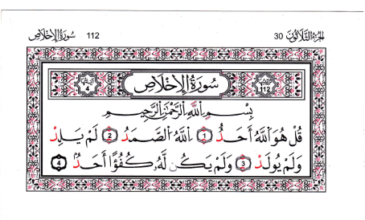 سُورَةُ الإِخْلَاصِ 112 الجزء الثلاثون 30
سُورَةُ الإِخْلَاصِ
112
4
بِسْمِ اللَّهِ الرَّحْمَٰنِ الرَّحِيمِ
قُلْ هُوَ اللَّهُ أَحَدٌ 1 اللَّهُ الصَّمَدُ 2 لَمْ يَلِدْ
وَلَمْ يُولَدْ 3 وَلَمْ يَكُن لَّهُ كُفُوًا أَحَدٌ 4